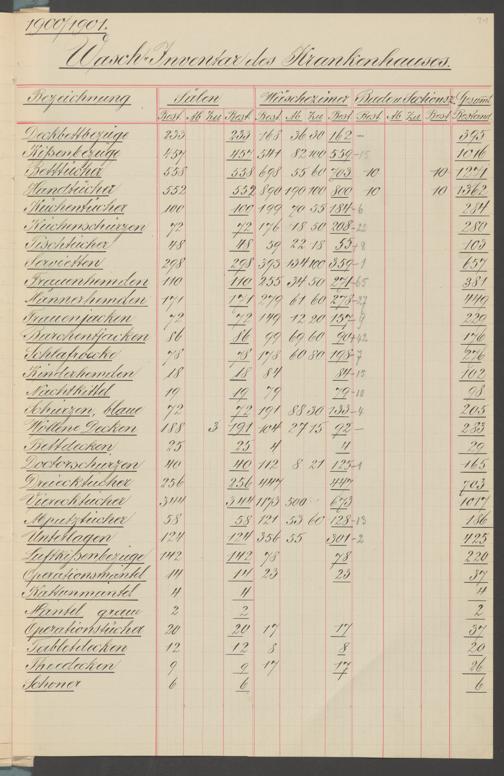 1900/1901.
Wasch-Inventar des Krankenhauses.
Bezeichnung Sälen Wäschezimer Baden Sectionsz. Gesamt
Best. Ab Zu Best. Best. Ab Zu Best. Best. Ab Zu Best. Bestand
Deckbettbezüge 233 233 165 36 30 162 – 395
Kißenbezüge 457 457 541 82 100 559 –15 1016
Betttücher 558 558 698 55 60 703 10 10 1271
Handtücher 552 552 890 190 100 800 10 10 1362
Küchentücher 100 100 199 70 55 184 –6 284
Küchenschürzen 72 72 176 18 50 208 –22 280
Tischtücher 48 48 59 22 18 55 103
Servietten 298 298 393 134 100 359 –1 657
Frauenhemden 110 110 255 34 50 271 –65 381
Männerhemden 171 171 279 61 60 278 –27 449
Frauenjacken 72 72 149 12 20 157 –9 229
Barchentjacken 86 86 99 69 60 90 +42 176
Schlafröcke 78 78 178 60 80 198 –7 276
Kinderhemden 18 18 84 84 –13 102
Nachtkittel 19 19 79 79 98
Schürzen, blaue 72 72 191 88 30 133 –4 205
Wollene Decken 188 3 191 104 27 15 92 – 283
Bettdecken 25 25 4 4 29
Doctorschürzen 40 40 112 8 21 125 –1 165
Dreiecktücher 256 256 447 447 703
Vierecktücher 344 344 1173 500 673 1017
58 58 121 53 60 128 –13 186
Unterlagen 124 124 356 55 301 –2 425
Luftkißenbezüge 142 142 78 78 220
Operationsmäntel 14 14 23 23 37
Kattunmantel 4 4 4
Mantel graue 2 2 2
Operationstücher 20 20 17 17 37
Tabletdecken 12 12 8 8 20
Theedecken 9 9 17 17 26
Schoner 6 6 6